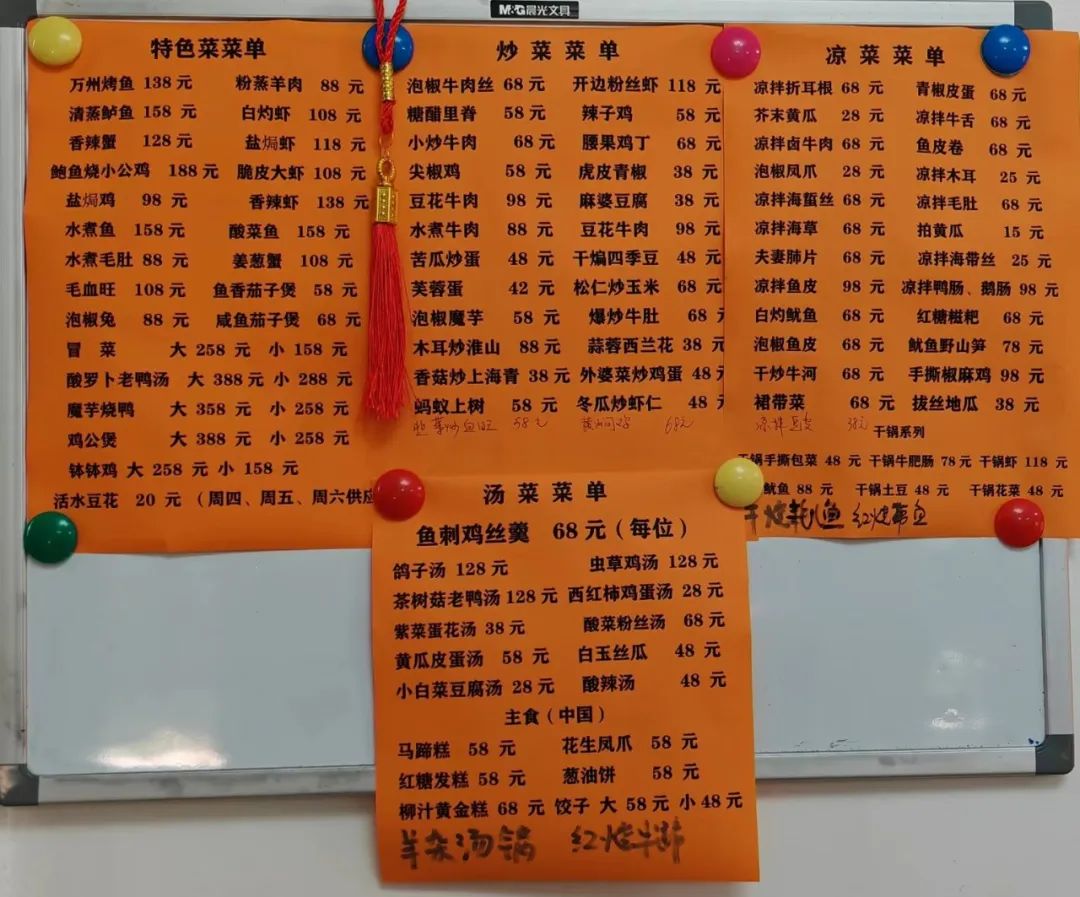 M&G晨光文具
特色菜菜单
万州烤鱼 138元 粉蒸羊肉 88 元
清蒸鲈鱼 158 元 白灼虾 108 元
香辣蟹 128 元 盐焗虾 118 元
鲍鱼烧小公鸡 188元 脆皮大虾 108 元
盐焗鸡 98 元 香辣虾 138 元
水煮鱼 158 元 酸菜鱼 158 元
水煮毛肚 88 元 姜葱蟹 108 元
毛血旺 108元 鱼香茄子煲 58 元
泡椒兔 88 元 咸鱼茄子煲 68 元
冒 菜 大 258 元 小 158 元
酸罗卜老鸭汤 大 388元 小 288 元
魔芋烧鸭 大 358 元 小 258 元
鸡公煲 大 388 元 小 258 元
钵钵鸡 大 258 元 小 158 元
活水豆花 20 元 (周四、周五、周六供应
炒菜菜单
泡椒牛肉丝 68 元 开边粉丝虾 118 元
糖醋里脊 58 元 辣子鸡 58 元
小炒牛肉 68 元 腰果鸡丁 68 元
尖椒鸡 58 元 虎皮青椒 38 元
豆花牛肉 98 元 麻婆豆腐 38 元
水煮牛肉 88 元 豆花牛肉 98 元
苦瓜炒蛋 48 元 干煸四季豆 48 元
芙蓉蛋 42 元 松仁炒玉米 68 元
泡椒魔芋 58 元 爆炒牛肚 68 元
木耳炒淮山 88元 蒜蓉西兰花 38 元
香菇炒上海青 38 元 外婆菜炒鸡蛋 48 元
蚂蚁上树 58 元 冬瓜炒虾仁 48 元
韭菜炒血旺 58元 黄焖鸡 68元
凉菜菜单
凉拌折耳根 68 元 青椒皮蛋 68 元
芥末黄瓜 28 元 凉拌牛舌 68 元
凉拌卤牛肉 68 元 鱼皮卷 68 元
泡椒凤爪 28 元 凉拌木耳 25 元
凉拌海蜇丝 68 元 凉拌毛肚 68 元
凉拌海草 68 元 拍黄瓜 15 元
夫妻肺片 68 元 凉拌海带丝 25 元
凉拌鱼皮 98 元 凉拌鸭肠、鹅肠 98 元
白灼鱿鱼 68 元 红糖糍粑 68 元
泡椒鱼皮 68 元 鱿鱼野山笋 78 元
干炒牛河 68 元 手撕椒麻鸡 98 元
裙带菜 68 元 拔丝地瓜 38 元
凉拌 38元
干锅系列
干锅手撕包菜 48 元 干锅牛肥肠 78元 干锅虾 118 元
鱿鱼 88 元 干锅土豆 48 元 干锅花菜 48 元
干烧 鱼 红烧带鱼
汤菜菜单
鱼刺鸡丝羹 68 元 (每位)
鸽子汤 128 元 虫草鸡汤 128 元
茶树菇老鸭汤 128 元 西红柿鸡蛋汤 28 元
紫菜蛋花汤 38 元 酸菜粉丝汤 68 元
黄瓜皮蛋汤 58 元 白玉丝瓜 48 元
小白菜豆腐汤 28 元 酸辣汤 48 元
主食 (中国)
马蹄糕 58 元 花生凤爪 58 元
红糖发糕 58 元 葱油饼 58 元
柳汁黄金糕 68 元 饺子 大 58 元 小 48 元
羊杂汤锅 红烧牛蹄